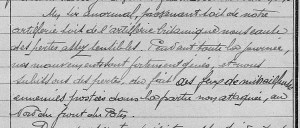 My tir anormal, provenant soit de notre
artillerie soit de l'artillerie britannique nous cause
des pertes assez sensibles. Pendant toute la journée,
nos mouvements sont fortement gênés, et nous
subissons des pertes, du fait des feux de mitrailleuses
ennemies postées dans la partie non attaquée, au
sud du front du Bois.